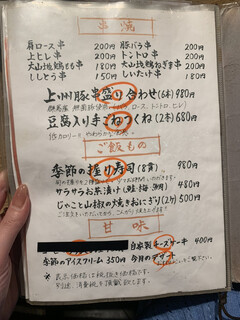 串焼
肩ロース串 200円 豚バラ串 200円
上ヒレ串 200円 トントロ串 200円
大山地鶏もも串 180円 大山地鶏ねぎま串 200円
ししとう串 150円 しいたけ串 180円
上州豚串盛り合わせ(6本) 980円
ロース、トントロ、ヒレ
豆腐入り手ごねつくね(2本) 680円
低カロリーで
ご飯もの
季節の握り寿司(8貫) 980円
サラサラお茶漬け(鮭・梅・鯛) 480円
じゃこと山椒の焼きおにぎり(2ケ) 500円
甘味
自家製チーズケーキ 400円
季節のアイスクリーム 350円 今月のデザート
※表示価格は税抜き価格です。
別途、消費税を頂戴致します。